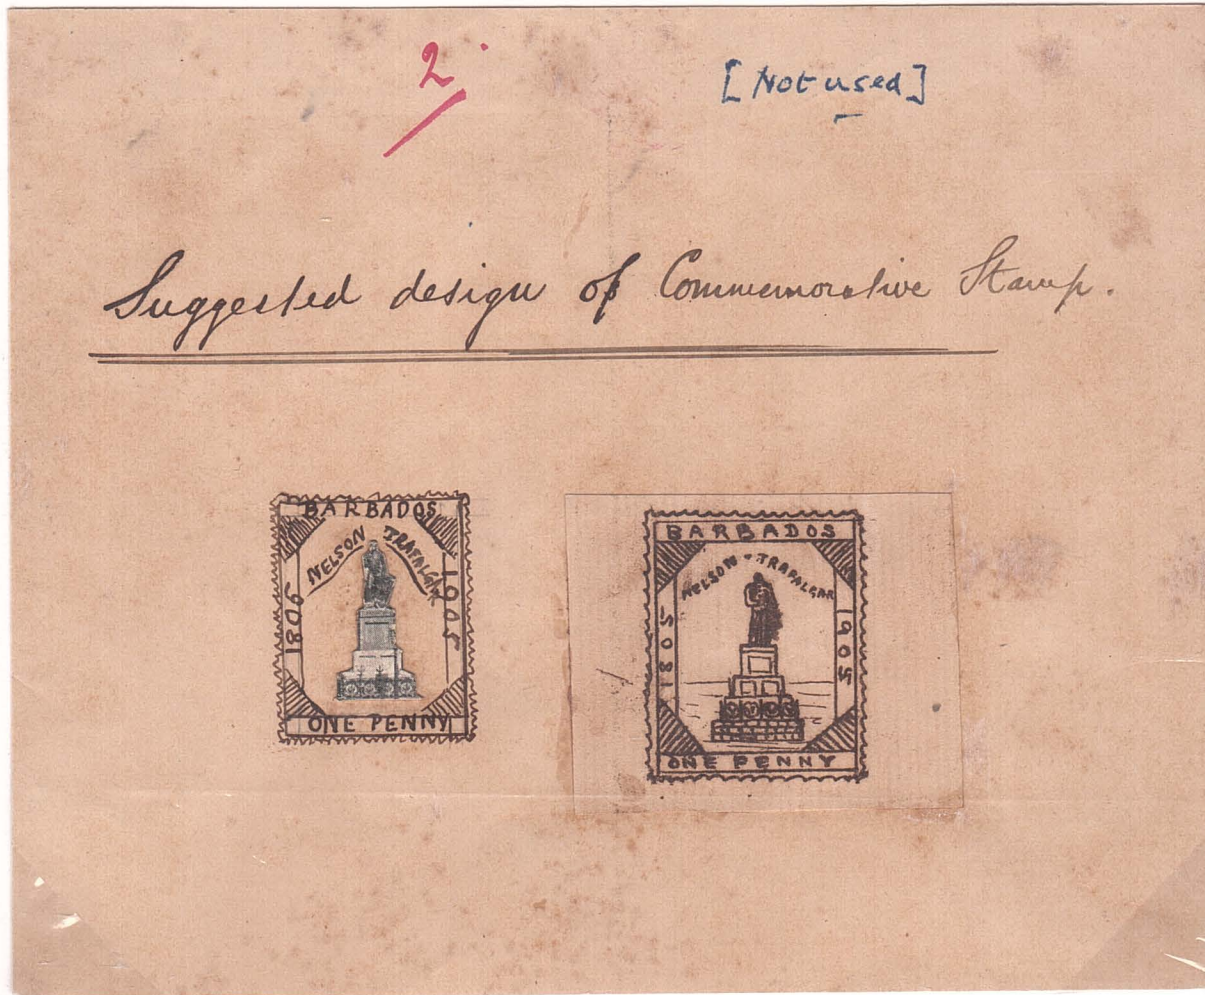 2.
[Not used]
Suggested design of Commemorative Stamp.
BARBADOS
NELSON TRAFALGAR
1806
1905
ONE PENNY
BARBADOS
NELSON · TRAFALGAR
1805
1905
ONE PENNY